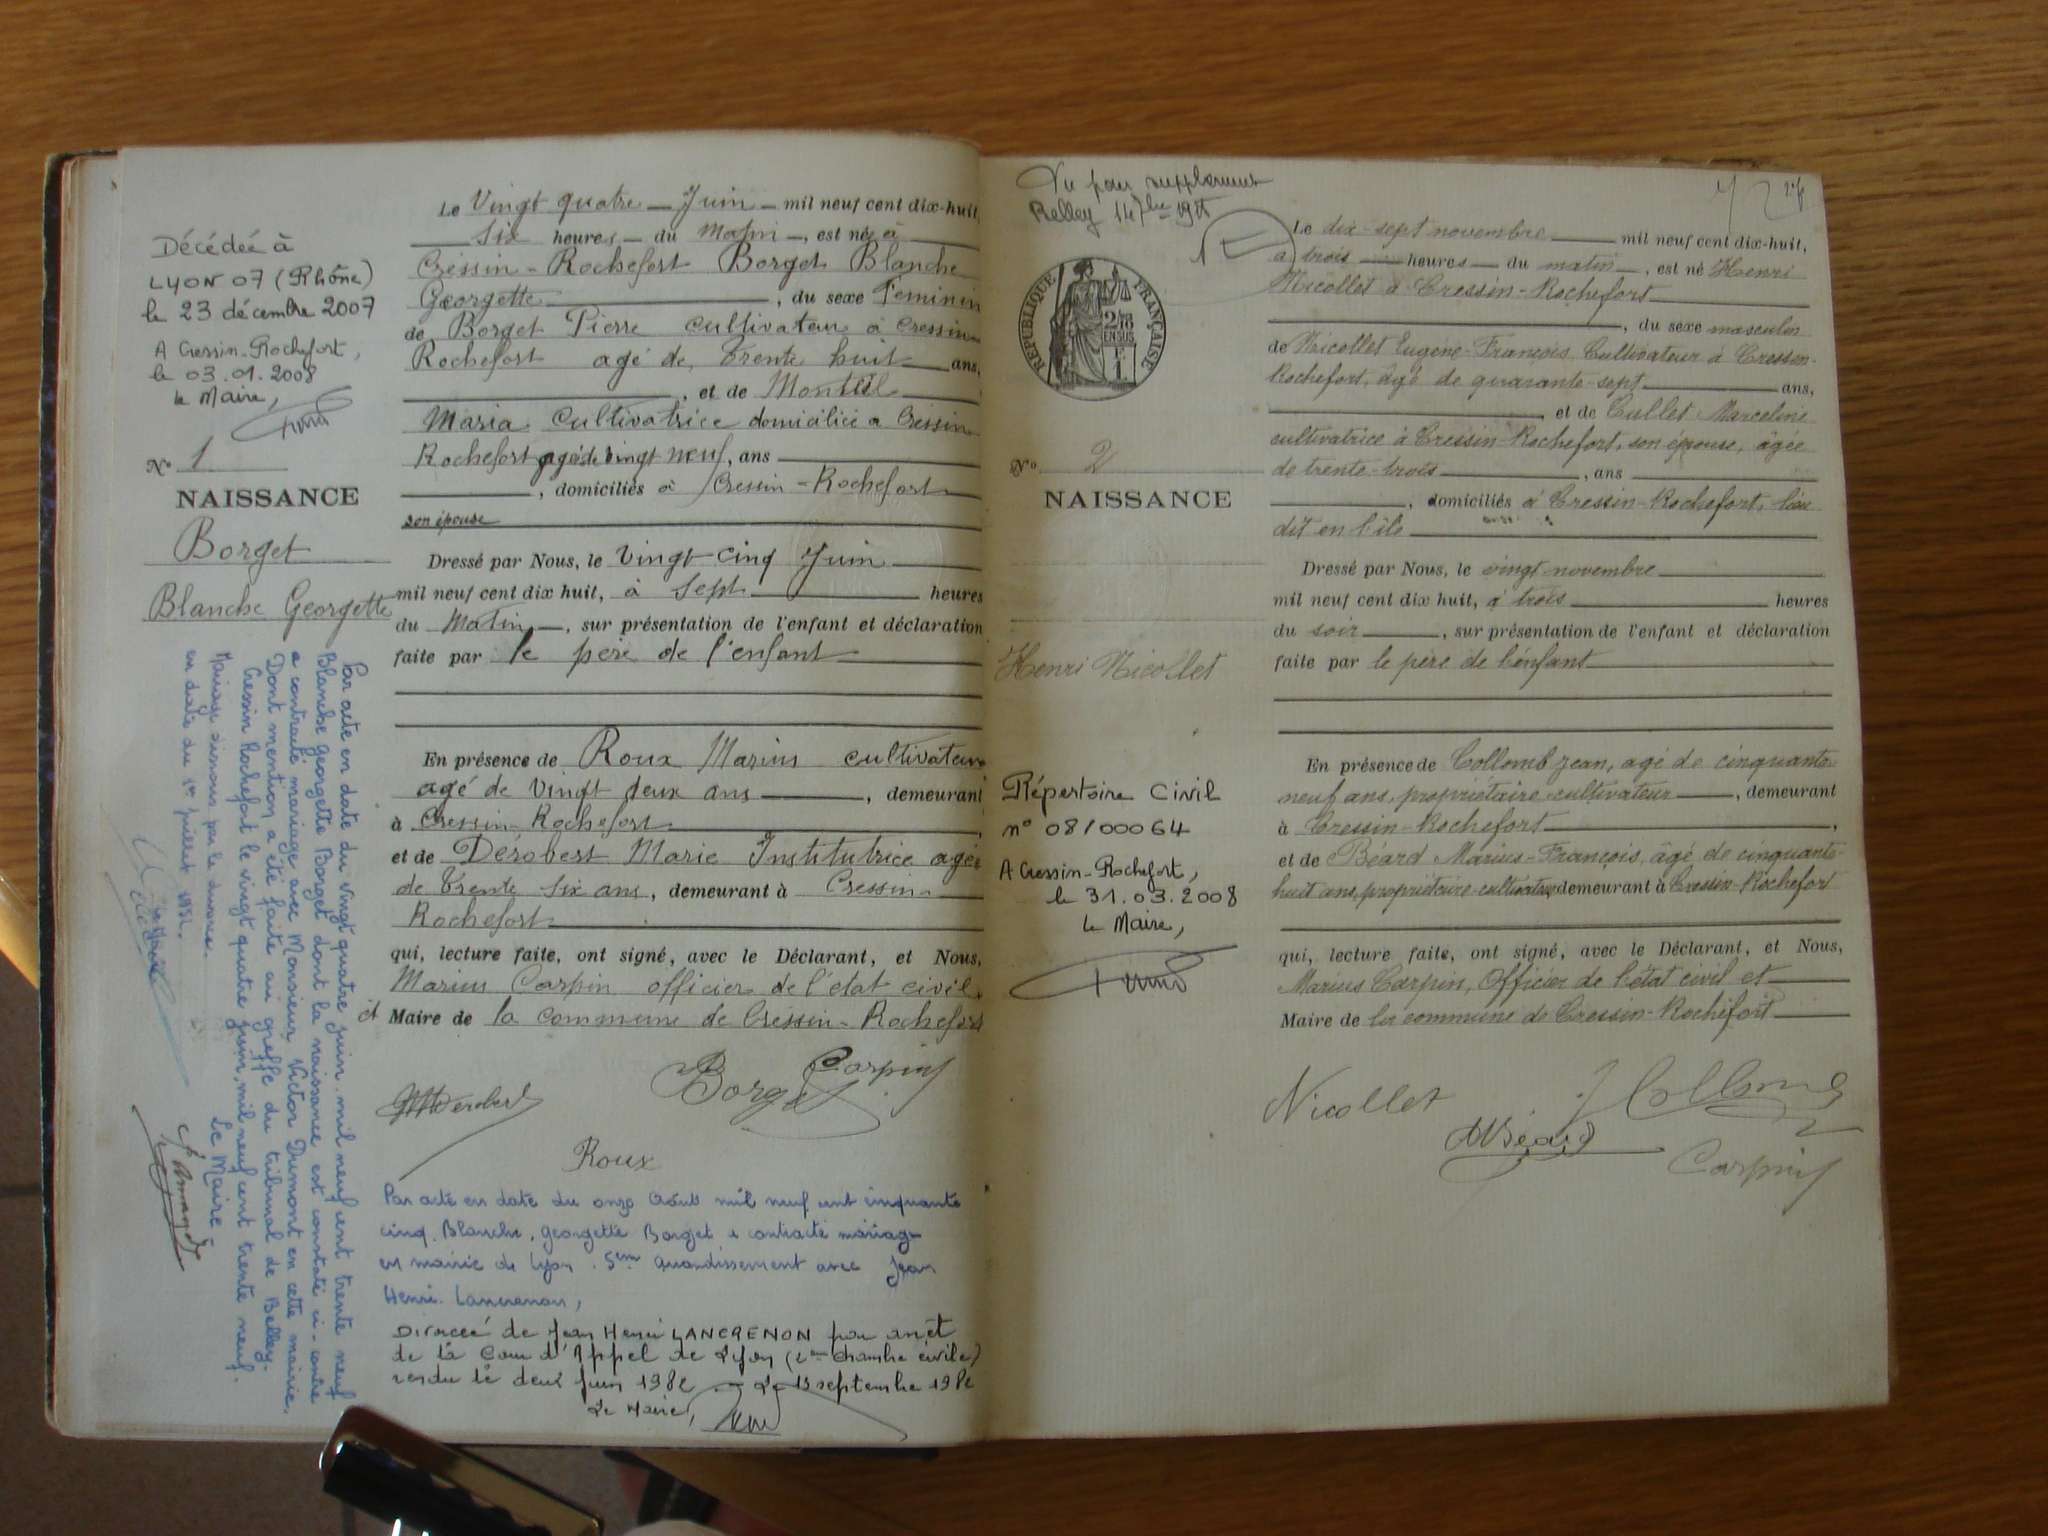 Le Vingt quatre Juin mil neuf cent dix-huit,
Six heures du Matin, est née à
Cressin-Rochefort Borget Blanche
Georgette, du sexe Féminin
de Borget Pierre cultivateur à Cressin-
Rochefort agé de Trente huit ans,
, et de
Maria cultivatrice domiciliée à Cressin
Rochefort agée de vingt neuf, ans
, domiciliés à Cressin-Rochefort
son épouse
Dressé par Nous, le vingt-cinq Juin
mil neuf cent dix huit, à Sept heures
du Matin, sur présentation de l'enfant et déclaration
faite par le père de l'enfant
En présence de Roux Marius cultivateur
agé de Vingt deux ans, demeurant
à Cressin-Rochefort,
et de Dérobert Marie Institutrice agée
de Trente Six ans, demeurant à Cressin-
Rochefort
qui, lecture faite, ont signé, avec le Déclarant, et Nous,
Marius Carpin officier de l'état civil
et Maire de la commune de Cressin-Rochefort
Carpin
Borget
Roux
Par acte en date du onze Août mil neuf cent cinquante
cinq Blanche, Georgette Borget a contracté mariage
en mairie de Lyon 5eme avec Jean
Henri Lancrenon,
Divorcée de Jean Henri LANCRENON par arrêt
de la Cour d'Appel de Lyon (2eme chambre civile)
rendu le deux Juin 1982 Le 13 septembre 1982
Le Maire,
Décédée à
LYON 07 (Rhône)
le 23 décembre 2007
A Cressin-Rochefort,
le 03.01.2008
le Maire,
No 1
NAISSANCE
Borget
Blanche Georgette
Par acte en date du vingt quatre juin mil neuf cent trente neuf
Blanche Georgette Borget dont la naissance est constatée ci-contre
a contracté mariage avec Monsieur Victor Dumont en cette mairie.
Dont mention a été faite au greffe du tribunal de Belley.
Cressin Rochefort le vingt quatre juin, mil neuf cent trente neuf.
Le Maire
Mariage dissous par le divorce
en date du 1er juillet 1952.
Le Maire
Vu pour supplément
Belley
RÉPUBLIQUE FRANÇAISE
No 2
NAISSANCE
Henri Nicollet
Répertoire Civil
n° 08/00064
A Cressin-Rochefort,
le 31.03.2008
le Maire,
Le dix-sept novembre mil neuf cent dix-huit,
à trois heures du matin, est né Henri
Nicollet à Cressin-Rochefort
, du sexe masculin
de Nicollet Eugène-François, Cultivateur à Cressin-
Rochefort, âgé de quarante-sept ans,
, et de Cullet Marceline
cultivatrice à Cressin-Rochefort, son épouse, âgée
de trente-trois, ans
, domiciliés à Cressin-Rochefort, lieu
dit en l'île
Dressé par Nous, le vingt novembre
mil neuf cent dix huit, à trois heures
du soir, sur présentation de l'enfant et déclaration
faite par le père de l'enfant
En présence de Collomb Jean, agé de cinquante
neuf ans, propriétaire-cultivateur, demeurant
à Cressin-Rochefort,
et de Béard Marius-François, âgé de cinquante-
huit ans, propriétaire-cultivateur, demeurant à Cressin-Rochefort
qui, lecture faite, ont signé, avec le Déclarant, et Nous,
Marius Carpin, Officier de l'état civil et
Maire de la commune de Cressin-Rochefort
Nicollet
J Collomb
MBéard
Carpin